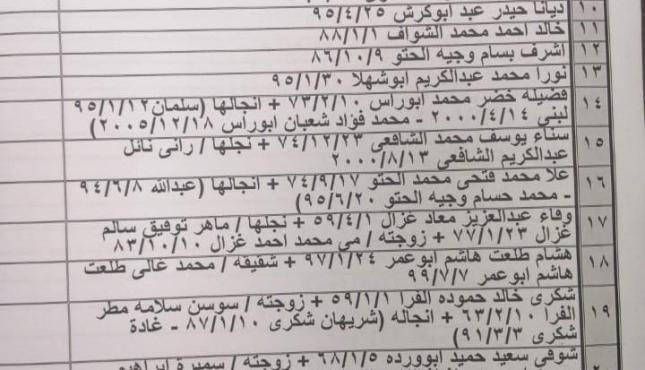 ١٠ ديانا حيدر عبد ابوكرش ٩٥/٤/٢٥
١١ خالد احمد محمد الشواف ٨٨/١/١
١٢ اشرف بسام وجيه الحتو ٨٦/١٠/٩
١٣ نورا محمد عبدالكريم ابوشهلا ٩٥/١/٣٠
١٤ فضيله خضر محمد ابوراس ٧٣/٢/١٠ + انجالها (سلمان ٩٥/١/١٢
لبنى ٢٠٠٠/٤/١٤ - محمد فؤاد شعبان ابوراس ٢٠٠٥/١٢/١٨)
١٥ سناء يوسف محمد الشافعى ٧٤/١٢/٢٣ + نجلها / رانى نائل
عبدالكريم الشافعى ٢٠٠٠/٨/١٣
١٦ علا محمد فتحى محمد الحتو ٧٤/٩/١٧ + انجالها (عبدالله ٩٤/٦/٨
- محمد حسام وجيه الحتو ٩٥/٦/٢٠)
١٧ وفاء عبدالعزيز معاد غزال ٥٩/٤/١ + نجلها / ماهر توفيق سالم
غزال ٧٧/١/٢٣ + زوجته / مى محمد احمد غزال ٨٣/١٠/١٠
١٨ هشام طلعت هاشم ابوعمر ٩٧/١/٢٤ + شقيقه / محمد غالى طلعت
هاشم ابوعمر ٩٩/٧/٧
١٩ شكرى خالد حموده الفرا ٥٩/١/١ + زوجته / سوسن سلامه مطر
الفرا ٦٣/٢/١٠ + انجاله (شريهان شكرى ٨٧/١/١٠ - غادة
شكرى ٩١/٣/٣)
شوقى سعيد حميد ابووردة ٦٨/١/٥ + زوجته / سميرة ابراهيم